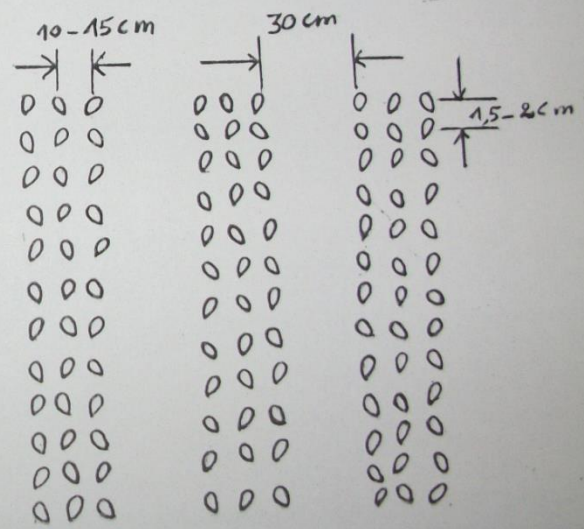 10-15cm
30cm
1,5-2cm